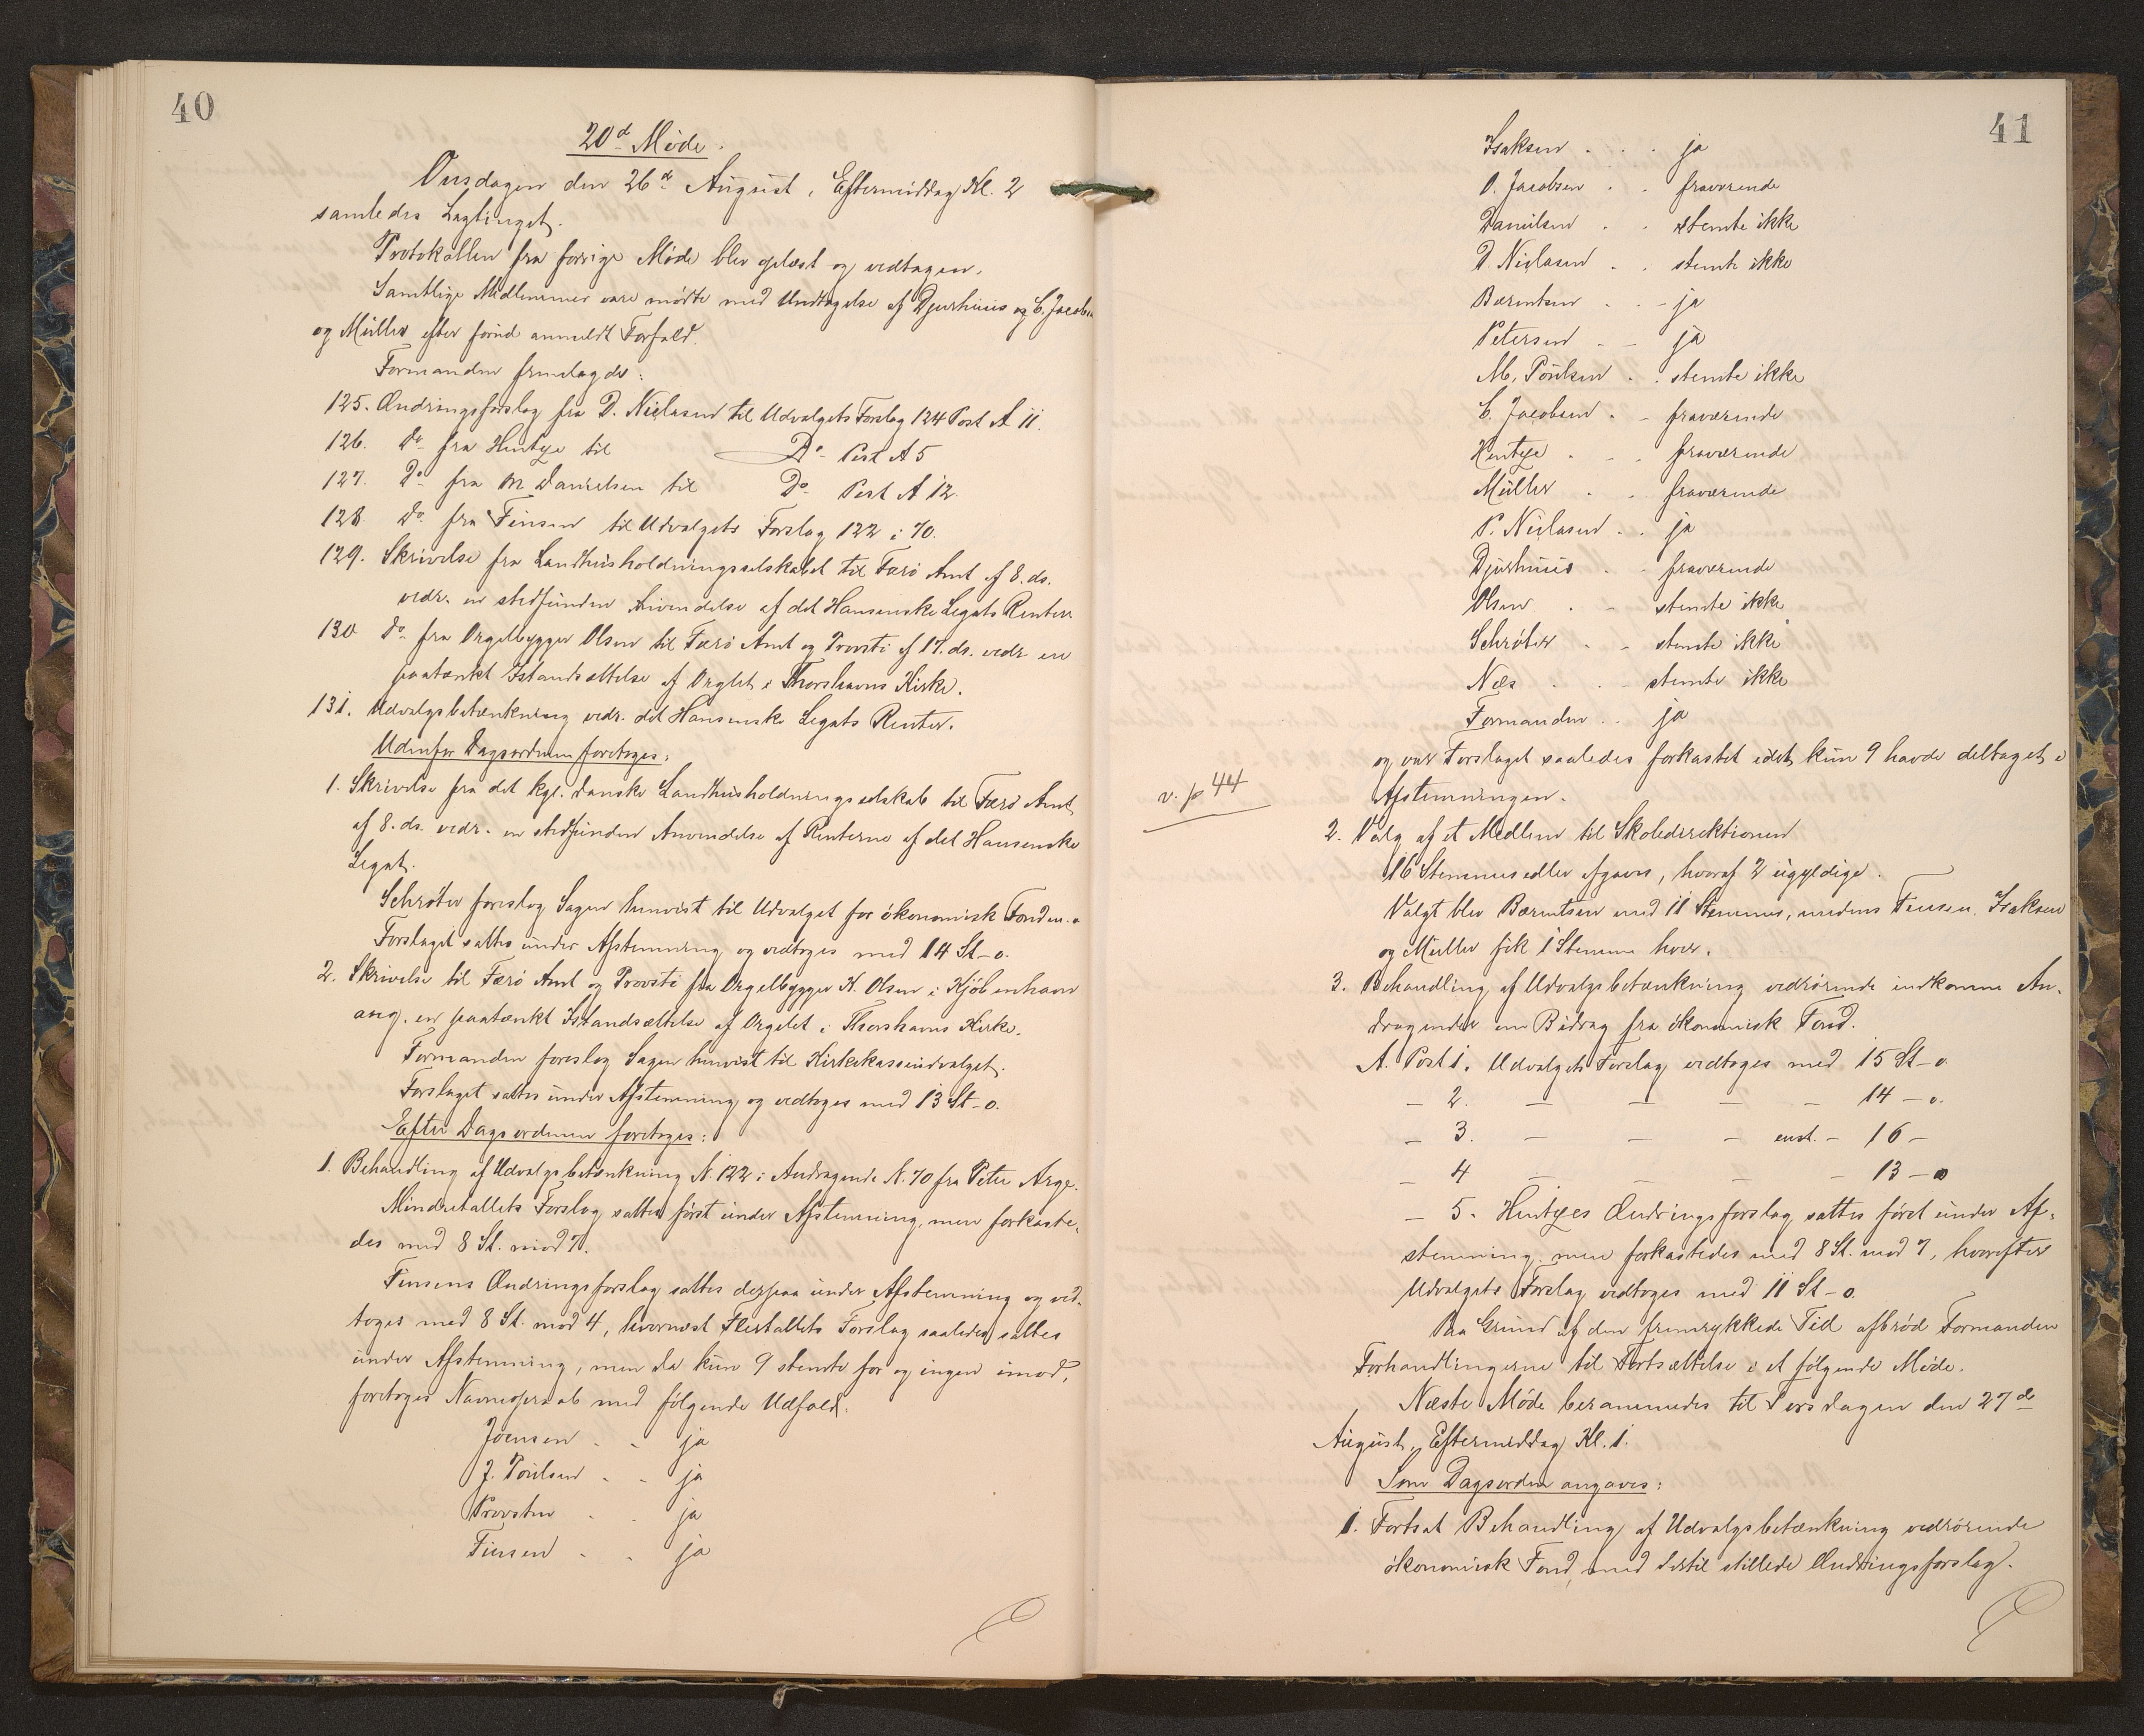 40
20d Møde.
Onsdagen den 26d August, Eftermiddag Kl. 2
samledes Lagtinget.
Protokollen fra forrige Møde blev oplæst og vedtagen.
Samtlige Medlemmer vare mødte med Undtagelse af Djurhuus og C. Jacobsen
og Müller efter forud anmeldt Forfald.
Formanden fremlagde:
125. Ændringsforslag fra D. Niclasen til Udvalgets Forslag 124 Post A 11.
126. do fra Hentze til Do Post A 5
127. Do fra M Danielsen til Do Post A 12.
128 do fra Finsen til Udvalgets Forslag 122 i 70.
129. Skrivelse fra Landhusholdningsselskabet til Færø Amt af 8. ds.
vedr. en stedfunden Anvendelse af det Hansenske Legats Renter
130 do fra Orgelbygger Olsen til Færø Amt og Provsti af 17. ds. vedr en
paatænkt Istandsættelse af Orglet i Thorshavns Kirke.
131. Udvalgsbetænkning vedr. det Hansenske Legats Renter.
Udenfor Dagsordenen foretoges:
1. Skrivelse fra det kgl. danske Landhusholdningsselskab til Færø Amt
af 8. ds. vedr. en stedfunden Anvendelse af Renterne af det Hansenske
Legat.
Schrøter foreslog Sagen henvist til Udvalget for økonomisk Fond m. v.
Forslaget sattes under Afstemning og vedtoges med 14 St - 0.
2. Skrivelse til Færø Amt og Provsti fra Orgelbygger K. Olsen i Kjøbenhavn
ang. en paatænkt Istandsættelse af Orgelet i Thorshavns Kirke.
Formanden foreslog Sagen henvist til Kirkekasseudvalget.
Forslaget sattes under Afstemning og vedtoges med 13 St - 0.
Efter Dagsordenen foretoges:
1. Behandling af Udvalgsbetænkning N. 122 i Andragende N. 70 fra Peter Arge.
Mindretallets Forslag sattes først under Afstemning, men forkaste-
des med 8 St. mod 7.
Finsens Ændringsforslag sattes derpaa under Afstemning og ved-
toges med 8 St. mod 4, hvornæst Flertallets Forslag saaledes sattes
under Afstemning, men da kun 9 stemte for og ingen imod,
foretoges Navneopraab med følgende Udfald:
Joensen . - ja
J. Poulsen . - ja
Provsten . . ja
Finsen . . ja
41
Isaksen . . . ja
O. Jacobsen . . fraværende
Danielsen . . stemte ikke
D. Niclasen . . stemte ikke
Bærentsen . . - ja
Petersen . - ja
M. Poulsen . . stemte ikke
C. Jacobsen . - fraværende
Hentze . . fraværende
Müller . . fraværende
P. Niclasen . . ja
Djurhuus . - fraværende
Olsen . - stemte ikke
Schrøter . - stemte ikke
Næs . . - stemte ikke
Formanden . . ja
og var Forslaget saaledes forkastet idet kun 9 havde deltaget i
Afstemningen.
v. p 44
2. Valg af et Medlem til Skoledirektionen
16 Stemmesedler afgaves, hvoraf 2 ugyldige.
Valgt blev Bærentsen med 11 Stemmer, medens Finsen, Isaksen
og Müller fik 1 Stemme hver.
3. Behandling af Udvalgsbetænkning vedrørende indkomne An-
dragender om Bidrag fra økonomisk Fond.
A. Post 1. Udvalgets Forslag vedtoges med 15 St - 0
- 2. - - - - 14 - 0.
- 3. - - - enst. - 16 -
- 4 - - - - 13 - 0
- 5. Hentzes Ændringsforslag sattes først under Af-
stemning, men forkastedes med 8 St. mod 7, hvorefter
Udvalgets Forslag vedtoges med 11 St - 0.
Paa Grund af den fremrykkede Tid afbrød Formanden
Forhandlingerne til Fortsættelse i et følgende Møde.
Næste Møde berammedes til Torsdagen den 27de
August, Eftermiddag Kl. 1.
Som Dagsorden angaves:
1. Fortsat Behandling af Udvalgsbetænkning vedrørende
økonomisk Fond, med dertil stillede Ændringsforslag.